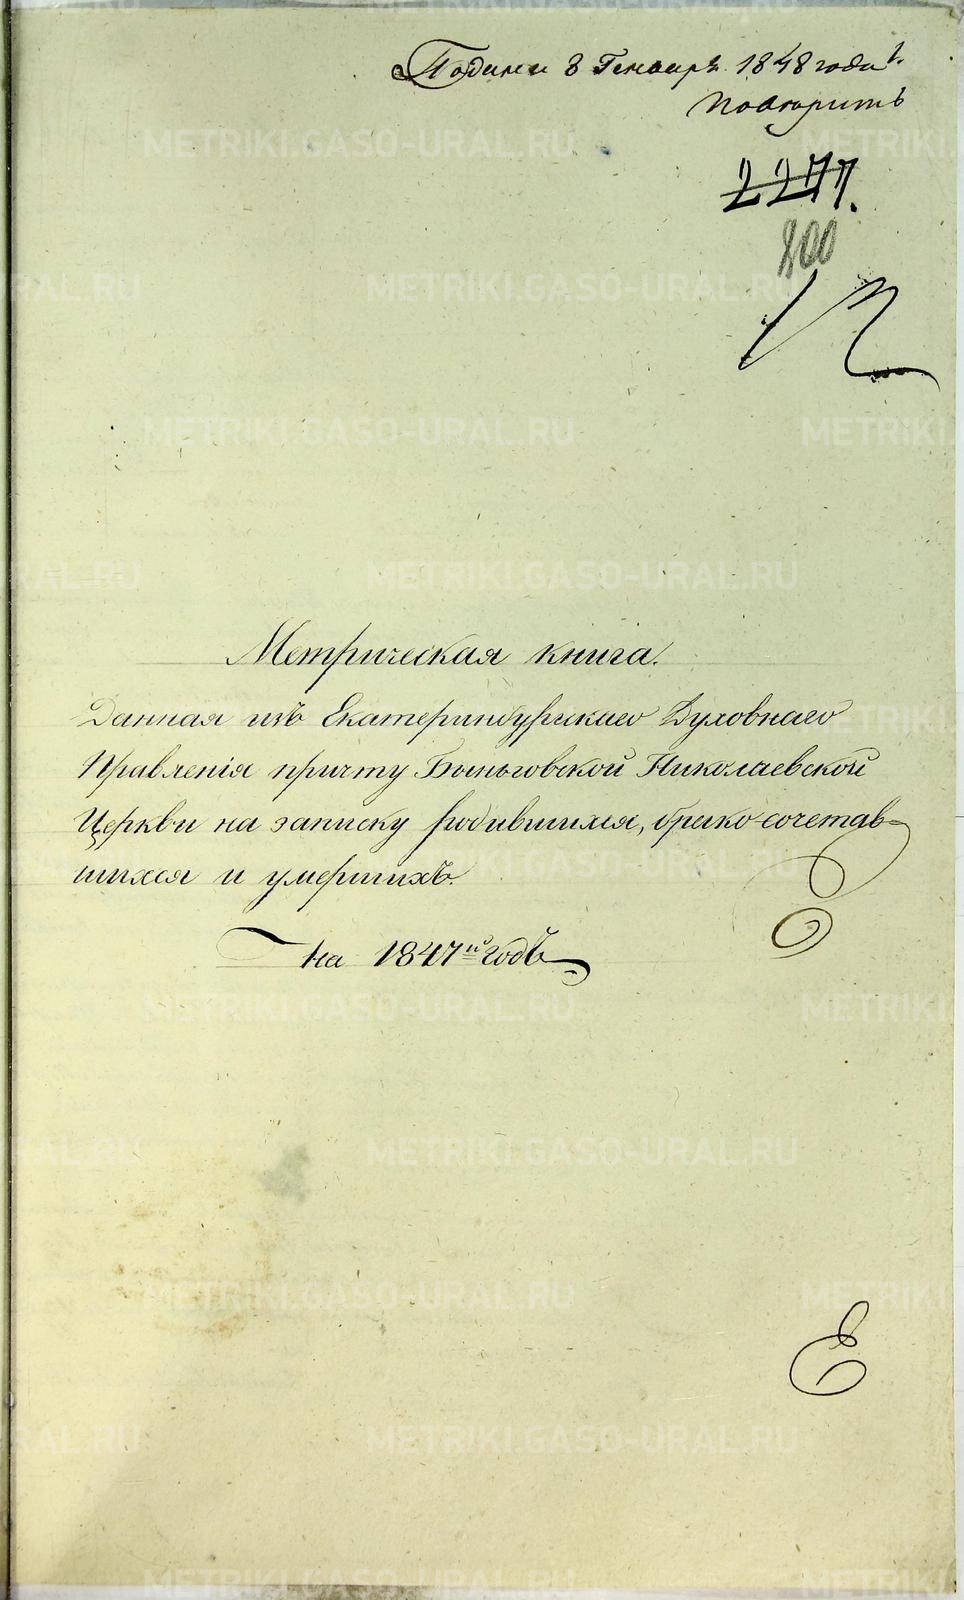 Подана 8 Генваря 1848 года.
Повторить
2277.
800
Метрическая книга.
Данная изъ Екатеринбургскаго Духовнаго
Правленія причту Быньговской Николаевской
Церкви на записку родившихся, брако-сочетав=
шихся и умершихъ.
на 1847й годъ
Е
METRIKI.GASO-URAL.RU